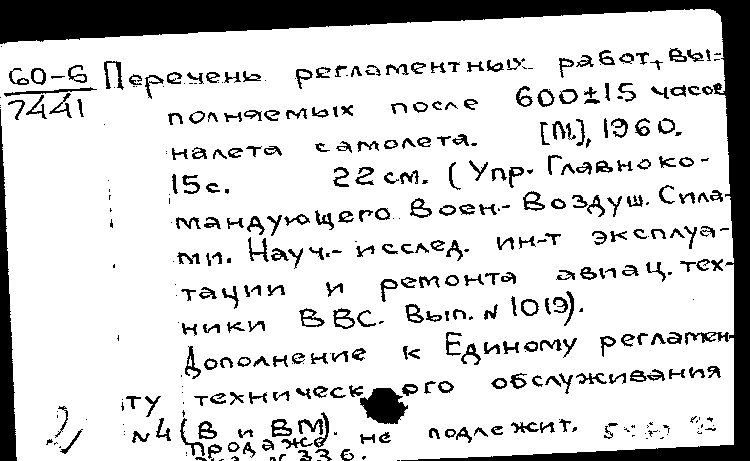 60-6 Перечень регламентных работ, вы=
7441
полняемых после 600±15 часов
налета самолета. [М.], 1960.
15 с. 22 см. (Упр. Главноко-
мандующего Воен.-Воздуш. Сила-
ми. Науч.-исслед. ин-т эксплуа-
тации и ремонта авиац. тех-
ники ВВС. Вып. № 1019).
Дополнение к Единому регламен-
ту технического обслуживания
№4 (В и ВМ).
продаже не подлежит.
№ 336.
2